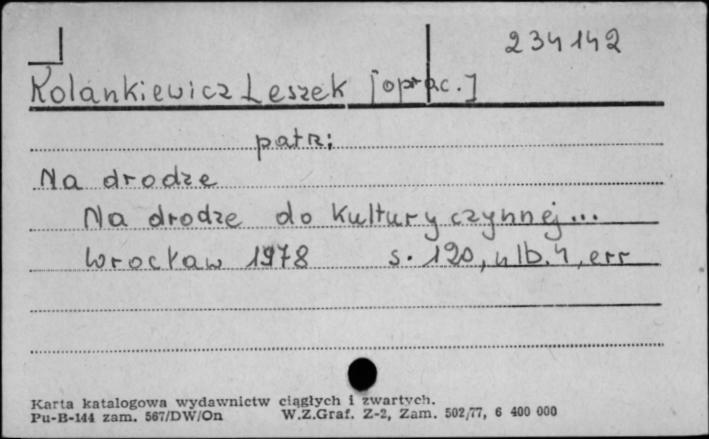 234142
Kolankiewicz Leszek [oprac.]
patrz:
Na drodze
Na drodze do kultury czynnej...
Wrocław 1978 s. 120, nlb. 4, err
Karta katalogowa wydawnictw ciągłych i zwartych.
Pu-B-144 zam. 567/DW/On W.Z.Graf. Z-2, Zam. 502/77, 6 400 000